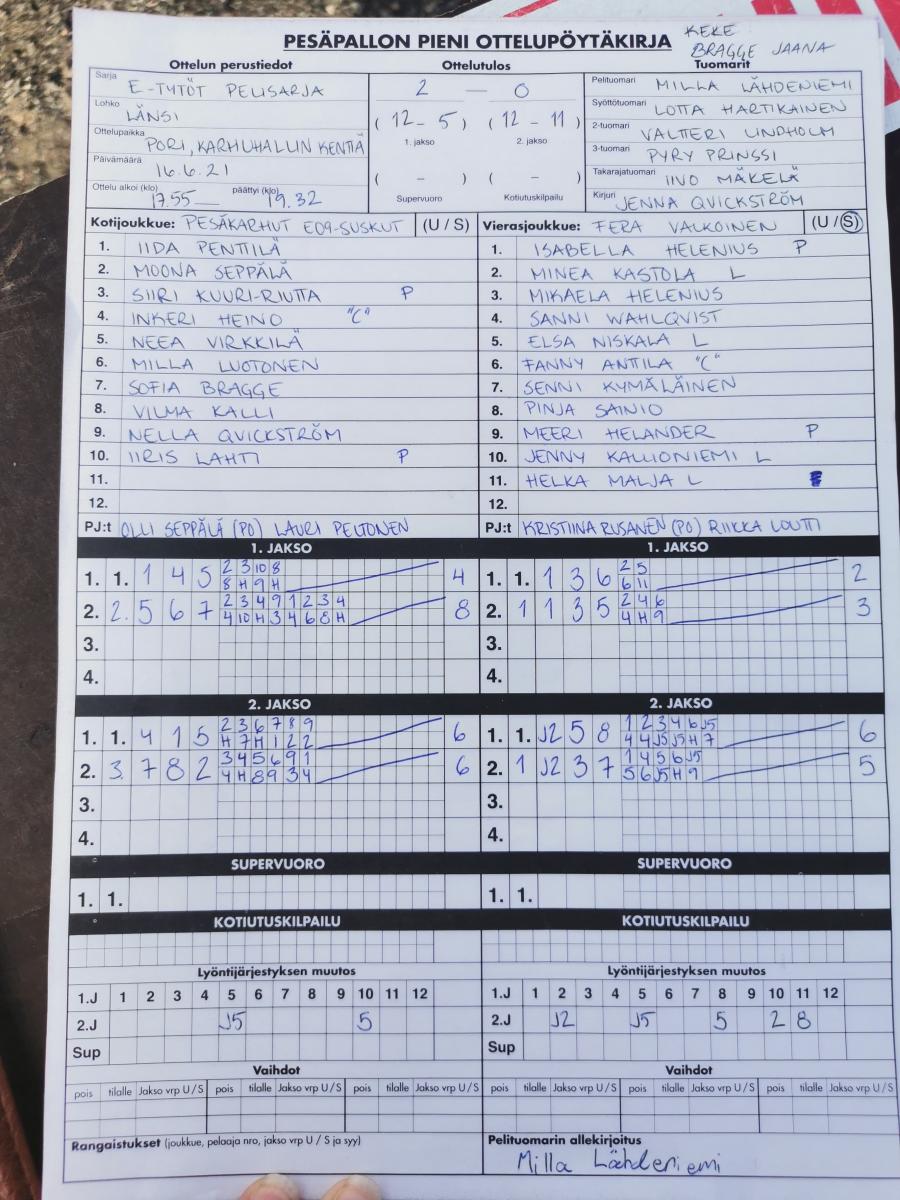 PESÄPALLON PIENI OTTELUPÖYTÄKIRJA
KEKE
BRAGGE JAANA
Ottelun perustiedot
Ottelutulos
Tuomarit
Sarja E-TYTÖT PELISARJA
Lohko LÄNSI
Ottelupaikka PORI, KARHUHALLIN KENTTÄ
Päivämäärä 16.6.21
Ottelu alkoi (klo) 17.55 päättyi (klo) 19.32
2 — 0
(12 - 5) (12 - 11)
1. jakso 2. jakso
( - ) ( - )
Supervuoro Kotiutuskilpailu
Pelituomari MILLA LÄHDENIEMI
Syöttötuomari LOTTA HARTIKAINEN
2-tuomari VALTTERI LINDHOLM
3-tuomari PYRY PRINSSI
Takarajatuomari IINO MÄKELÄ
Kirjuri JENNA QVICKSTRÖM
Kotijoukkue: PESÄKARHUT E09-SUSKUT (U / S)
1. IIDA PENTTILÄ
2. MOONA SEPPÄLÄ
3. SIIRI KUURI-RIUTTA P
4. INKERI HEINO "C"
5. NEEA VIRKKILÄ
6. MILLA LUOTONEN
7. SOFIA BRAGGE
8. VILMA KALLI
9. NELLA QVICKSTRÖM
10. IIRIS LAHTI P
11.
12.
PJ:t OLLI SEPPÄLÄ (PO) LAURI PELTONEN
Vierasjoukkue: FERA VALKOINEN (U / S)
1. ISABELLA HELENIUS P
2. MINEA KASTOLA L
3. MIKAELA HELENIUS
4. SANNI WAHLQVIST
5. ELSA NISKALA L
6. FANNY ANTTILA "C"
7. SENNI KYMÄLÄINEN
8. PINJA SAINIO
9. MEERI HELANDER P
10. JENNY KALLIONIEMI L
11. HELKA MALJA L
12.
PJ:t KRISTIINA RUSANEN (PO) RIIKKA LOUTTI
1. JAKSO
1. 1. 1 4 5 2 3 10 8 4
8 H 9 H
2. 2. 5 6 7 2 3 4 9 1 2 3 4 8
4 10 H 3 4 6 8 H
3.
4.
1. JAKSO
1. 1. 1 3 6 2 5 2
6 11
2. 1 1 3 5 2 4 6 3
4 H 9
3.
4.
2. JAKSO
1. 1. 4 1 5 2 3 6 7 8 9 6
H 7 H 1 2 2
2. 3. 7 8 2 3 4 5 6 9 1 6
4 H 8 9 3 4
3.
4.
2. JAKSO
1. 1. J2 5 8 1 2 3 4 6 J5 6
4 4 J5 J5 H 7
2. 1 J2 3 7 1 4 5 6 J5 5
5 6 J5 H 9
3.
4.
SUPERVUORO
1. 1.
SUPERVUORO
1. 1.
KOTIUTUSKILPAILU
KOTIUTUSKILPAILU
Lyöntijärjestyksen muutos
1.J 1 2 3 4 5 6 7 8 9 10 11 12
2.J J5 5
Sup
Lyöntijärjestyksen muutos
1.J 1 2 3 4 5 6 7 8 9 10 11 12
2.J J2 J5 5 2 8
Sup
Vaihdot
pois tilalle Jakso vrp U / S pois tilalle Jakso vrp U / S pois tilalle Jakso vrp U / S
Vaihdot
pois tilalle Jakso vrp U / S pois tilalle Jakso vrp U / S pois tilalle Jakso vrp U / S
Rangaistukset (joukkue, pelaaja nro, jakso vrp U / S ja syy)
Pelituomarin allekirjoitus
Milla Lähdeniemi